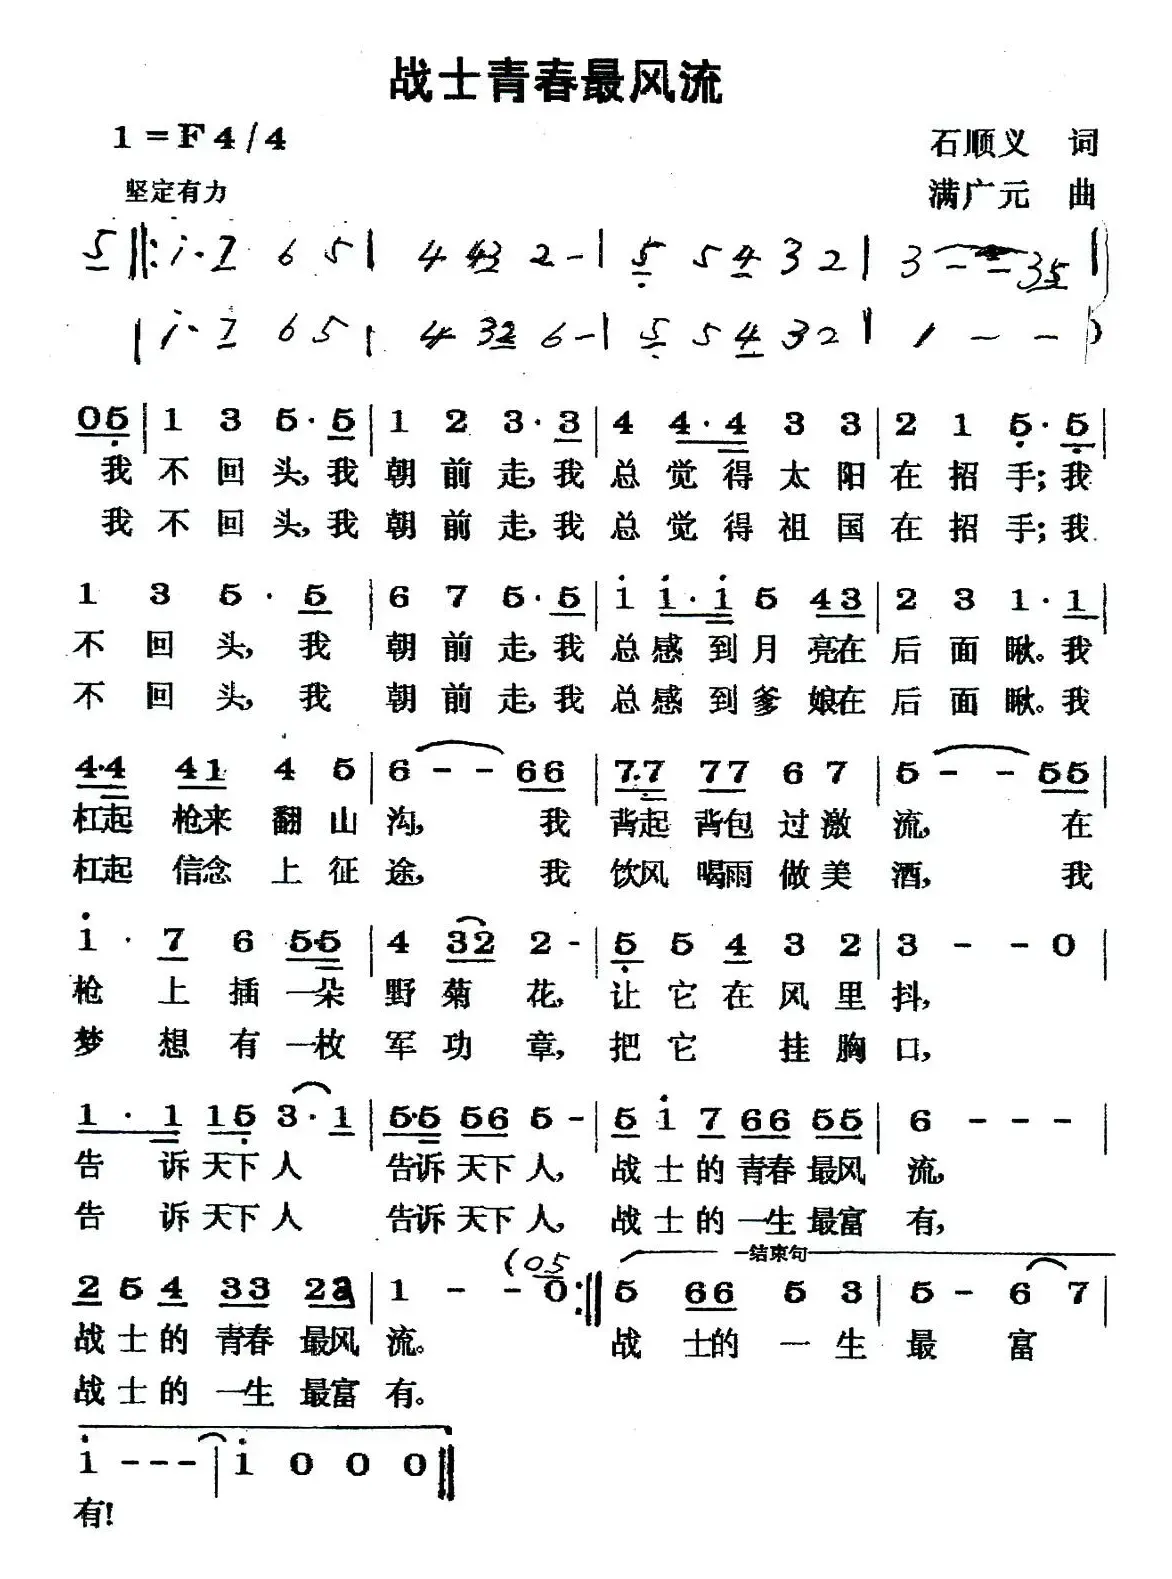 战士青春最风流
1=F 4/4
石顺义 词
坚定有力
满广元 曲
5 ‖: i·7 6 5 | 4 43 2 - | 5 5 4 3 2 | 3 - - 35 |
| i·7 6 5 | 4 32 6 - | 5 5 4 32 | 1 - - )
05 | 1 3 5·5 | 1 2 3·3 | 4 4·4 3 3 | 2 1 5·5 |
我 不 回 头,我 朝 前 走,我 总 觉 得 太 阳 在 招 手;我
我 不 回 头,我 朝 前 走,我 总 觉 得 祖 国 在 招 手;我
1 3 5·5 | 6 7 5·5 | i i·i 5 43 | 2 3 1·1 |
不 回 头, 我 朝 前 走,我 总 感 到 月 亮在 后 面 瞅。我
不 回 头, 我 朝 前 走,我 总 感 到 爹 娘在 后 面 瞅。我
4·4 41 4 5 | 6 - - 66 | 7·7 77 6 7 | 5 - - 55 |
杠起 枪来 翻 山 沟, 我 背起 背包 过 激 流, 在
杠起 信念 上 征 途, 我 饮风 喝雨 做 美 酒, 我
i·7 6 5·5 | 4 32 2 - | 5 5 4 3 2 | 3 - - 0 |
枪 上 插 一朵 野 菊 花, 让 它 在 风 里 抖,
梦 想 有 一枚 军 功 章, 把 它 挂 胸 口,
1·1 15 3·1 | 5·5 56 5 - | 5 i 7 66 55 | 6 - - - |
告 诉 天下 人 告诉 天下 人, 战 士 的 青春 最风 流,
告 诉 天下 人 告诉 天下 人, 战 士 的 一生 最富 有,
(05 结束句
2 5 4 33 23 | 1 - - 0 :‖ 5 66 5 3 | 5 - 6 7 |
战 士 的 青春 最风 流。 战 士的 一 生 最 富
战 士 的 一生 最富 有。
i - - - | i 0 0 0 ‖
有!